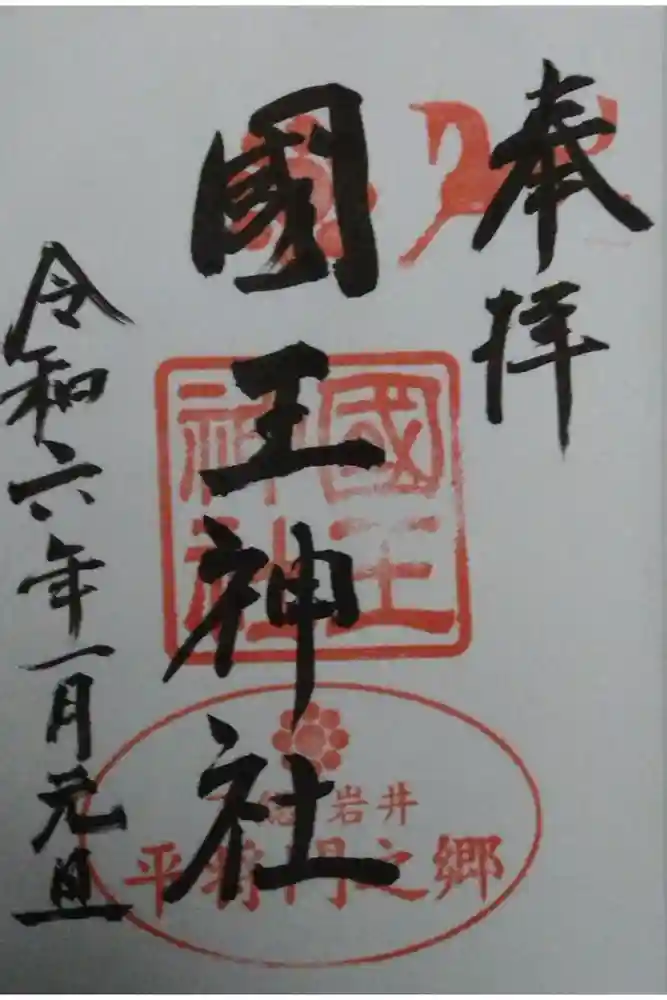 奉拝
國王神社
令和六年一月元旦
國王
神社
岩井
平将門之郷